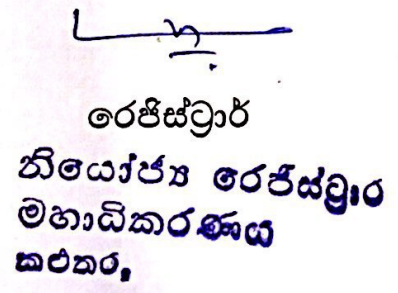 රෙජිස්ට්‍රාර්
නියෝජ්‍ය රෙජිස්ට්‍රාර
මහාධිකරණය
කළුතර,